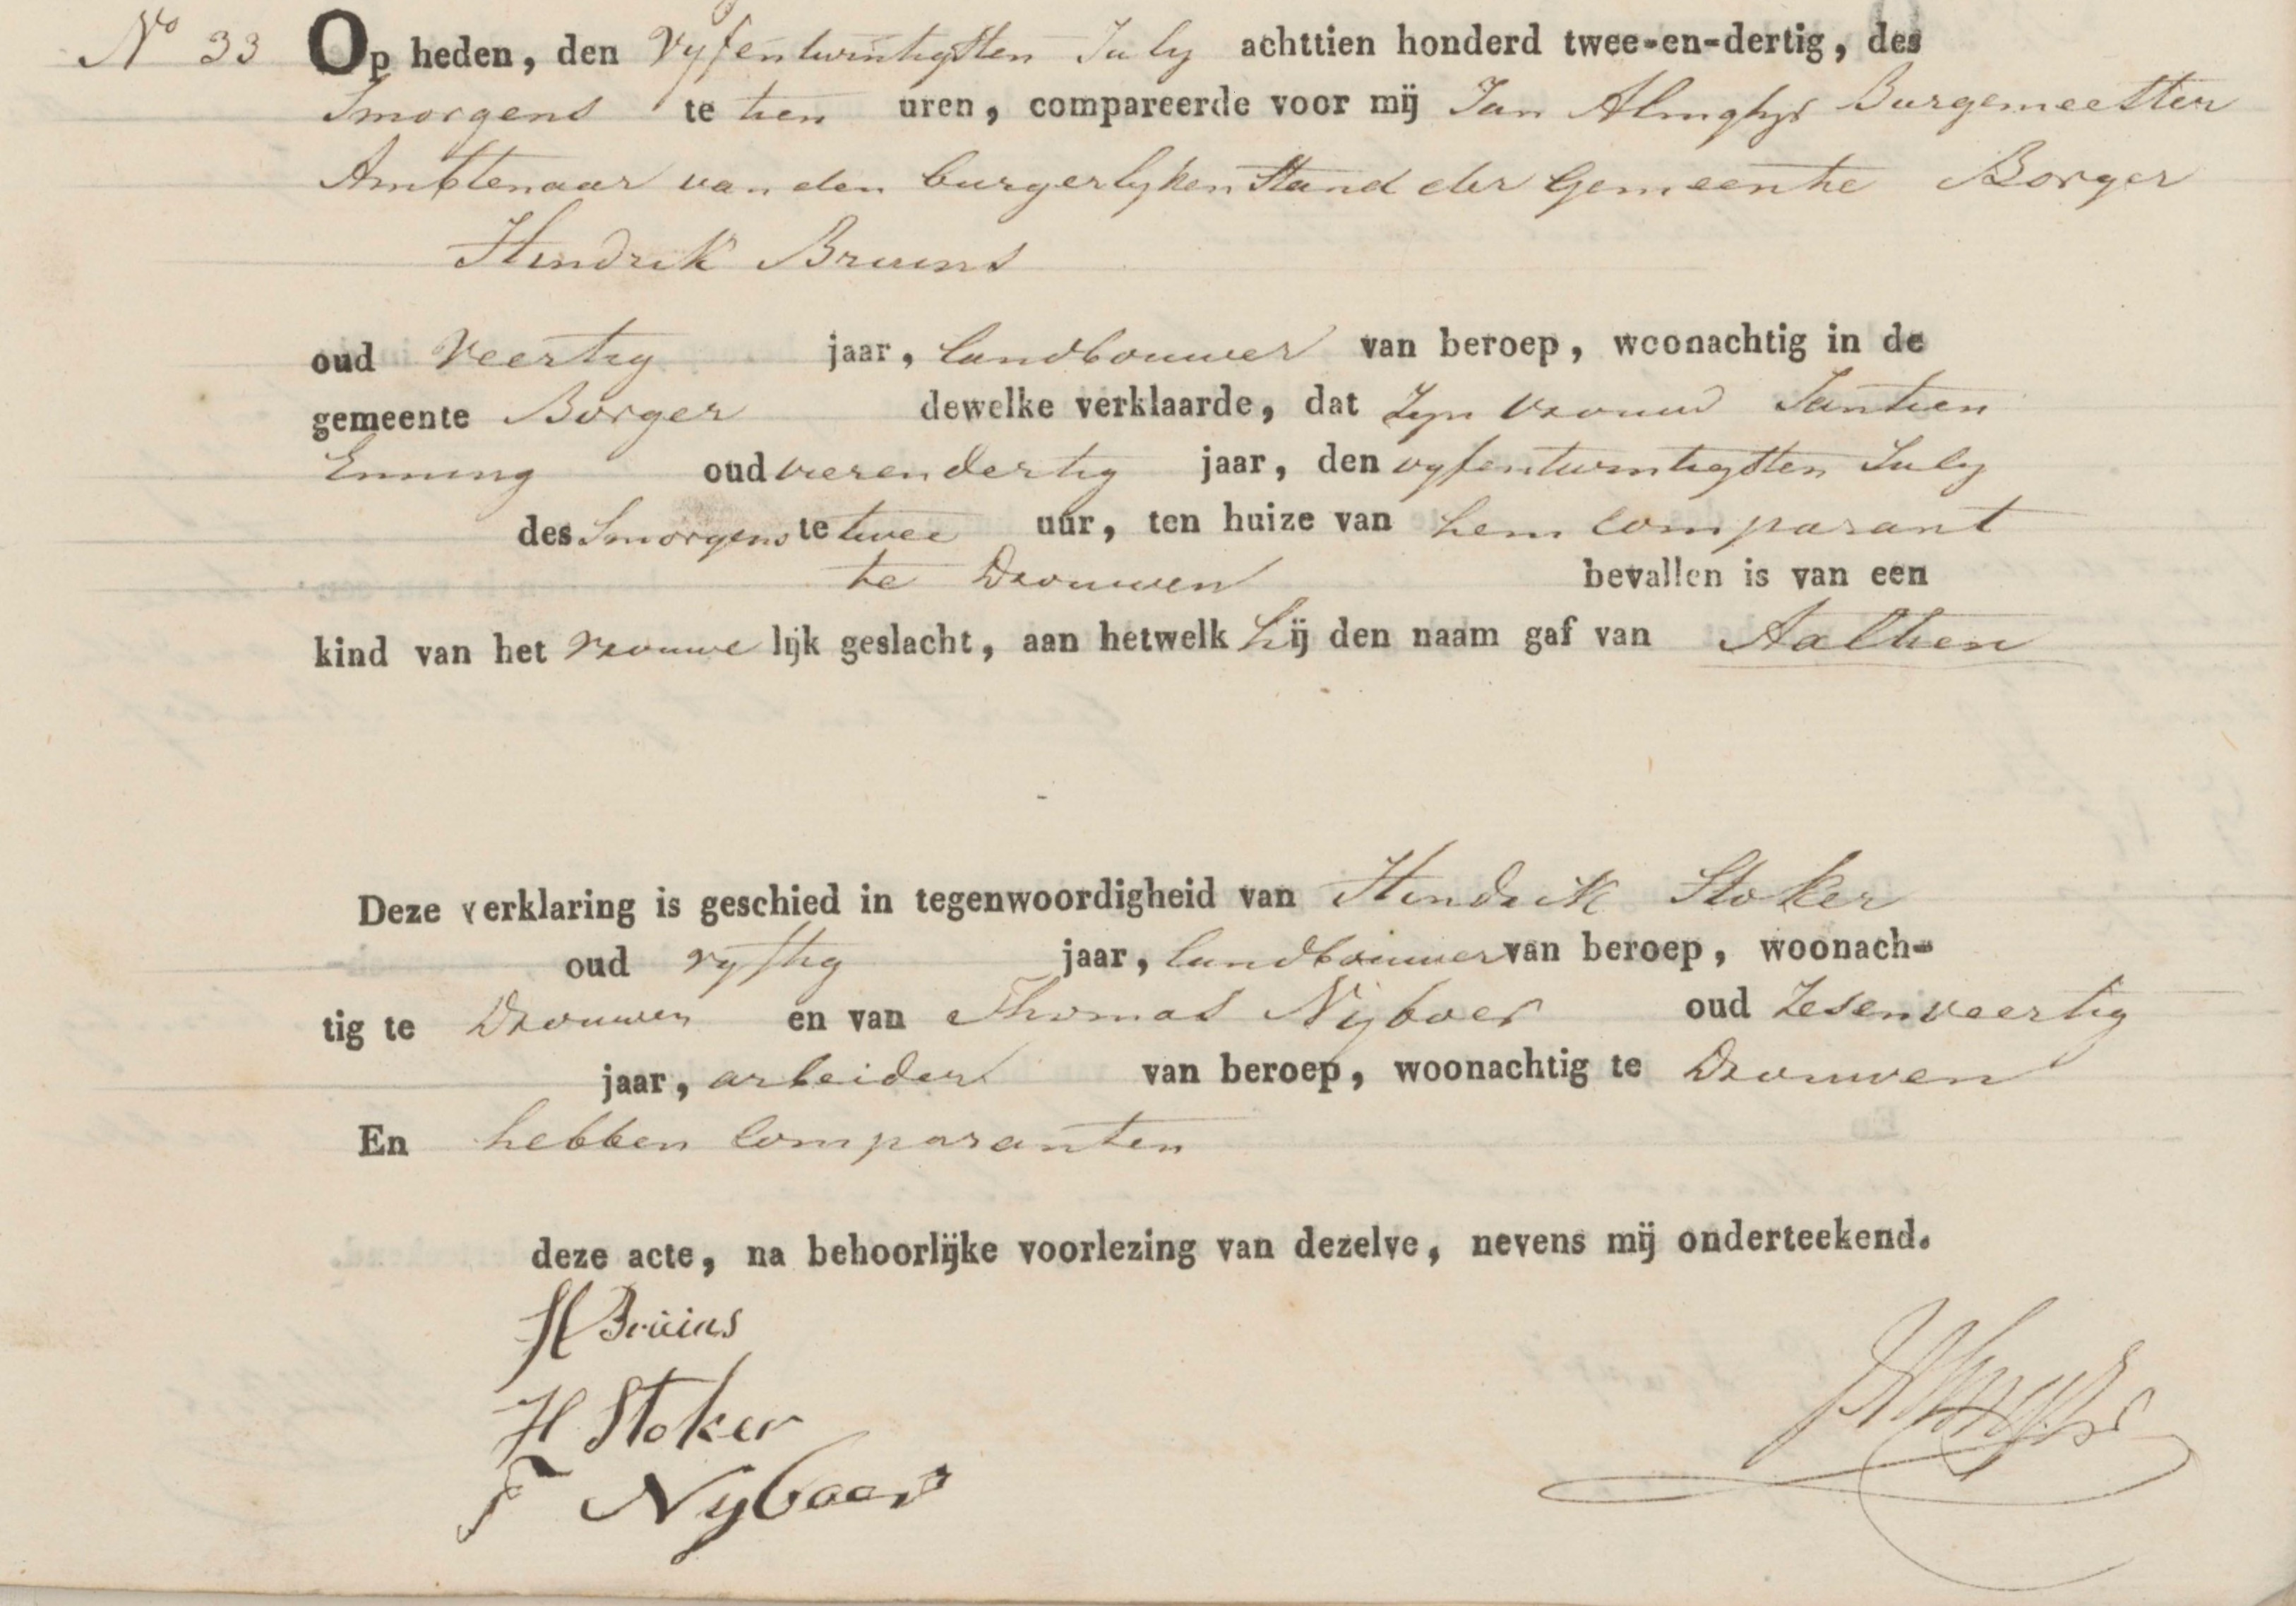 No 33 Op heden, den Vyfentwintigsten July achttien honderd twee-en-dertig, des
Smorgens te tien uren, compareerde voor mij Jan Alingh Burgemeester
Ambtenaar van den burgerlyken Stand der Gemeente Borger
Hendrik Bruins
oud Veertig jaar, landbouwer van beroep, woonachtig in de
gemeente Borger dewelke verklaarde, dat Zyn Vrouw Jantien
Enning oud vierendertig jaar, den vyfentwintigsten July
des Smorgens te twee uur, ten huize van hem Comparant
te Drouwen bevallen is van een
kind van het Vrouwe lijk geslacht, aan hetwelk hij den naam gaf van Aaltien
Deze verklaring is geschied in tegenwoordigheid van Hendrik Stoker
oud vyftig jaar, landbouwer van beroep, woonach-
tig te Drouwen en van Thomas Nijboer oud Zesenveertig
jaar, arbeider van beroep, woonachtig te Drouwen
En hebben Comparanten
deze acte, na behoorlijke voorlezing van dezelve, nevens mij onderteekend.
H Bruins
H Stoker
T Nyboer